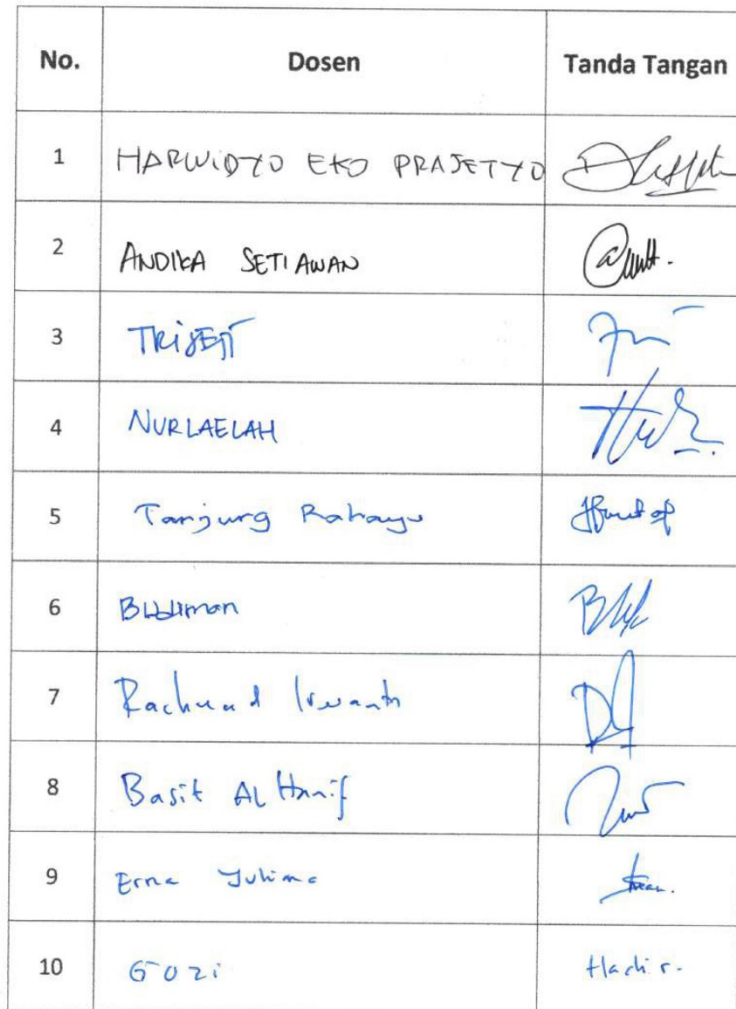 No. Dosen Tanda Tangan
1 HARWIDYO EKO PRASETYO
2 ANDIKA SETIAWAN
3
4 NURLAELAH
5 Tanjung Rahayu
6 Budiman
7 Rachmad Irwanto
8 Basit Al Hanif
9 Erna Yuliana
10 Gozi Hadir.